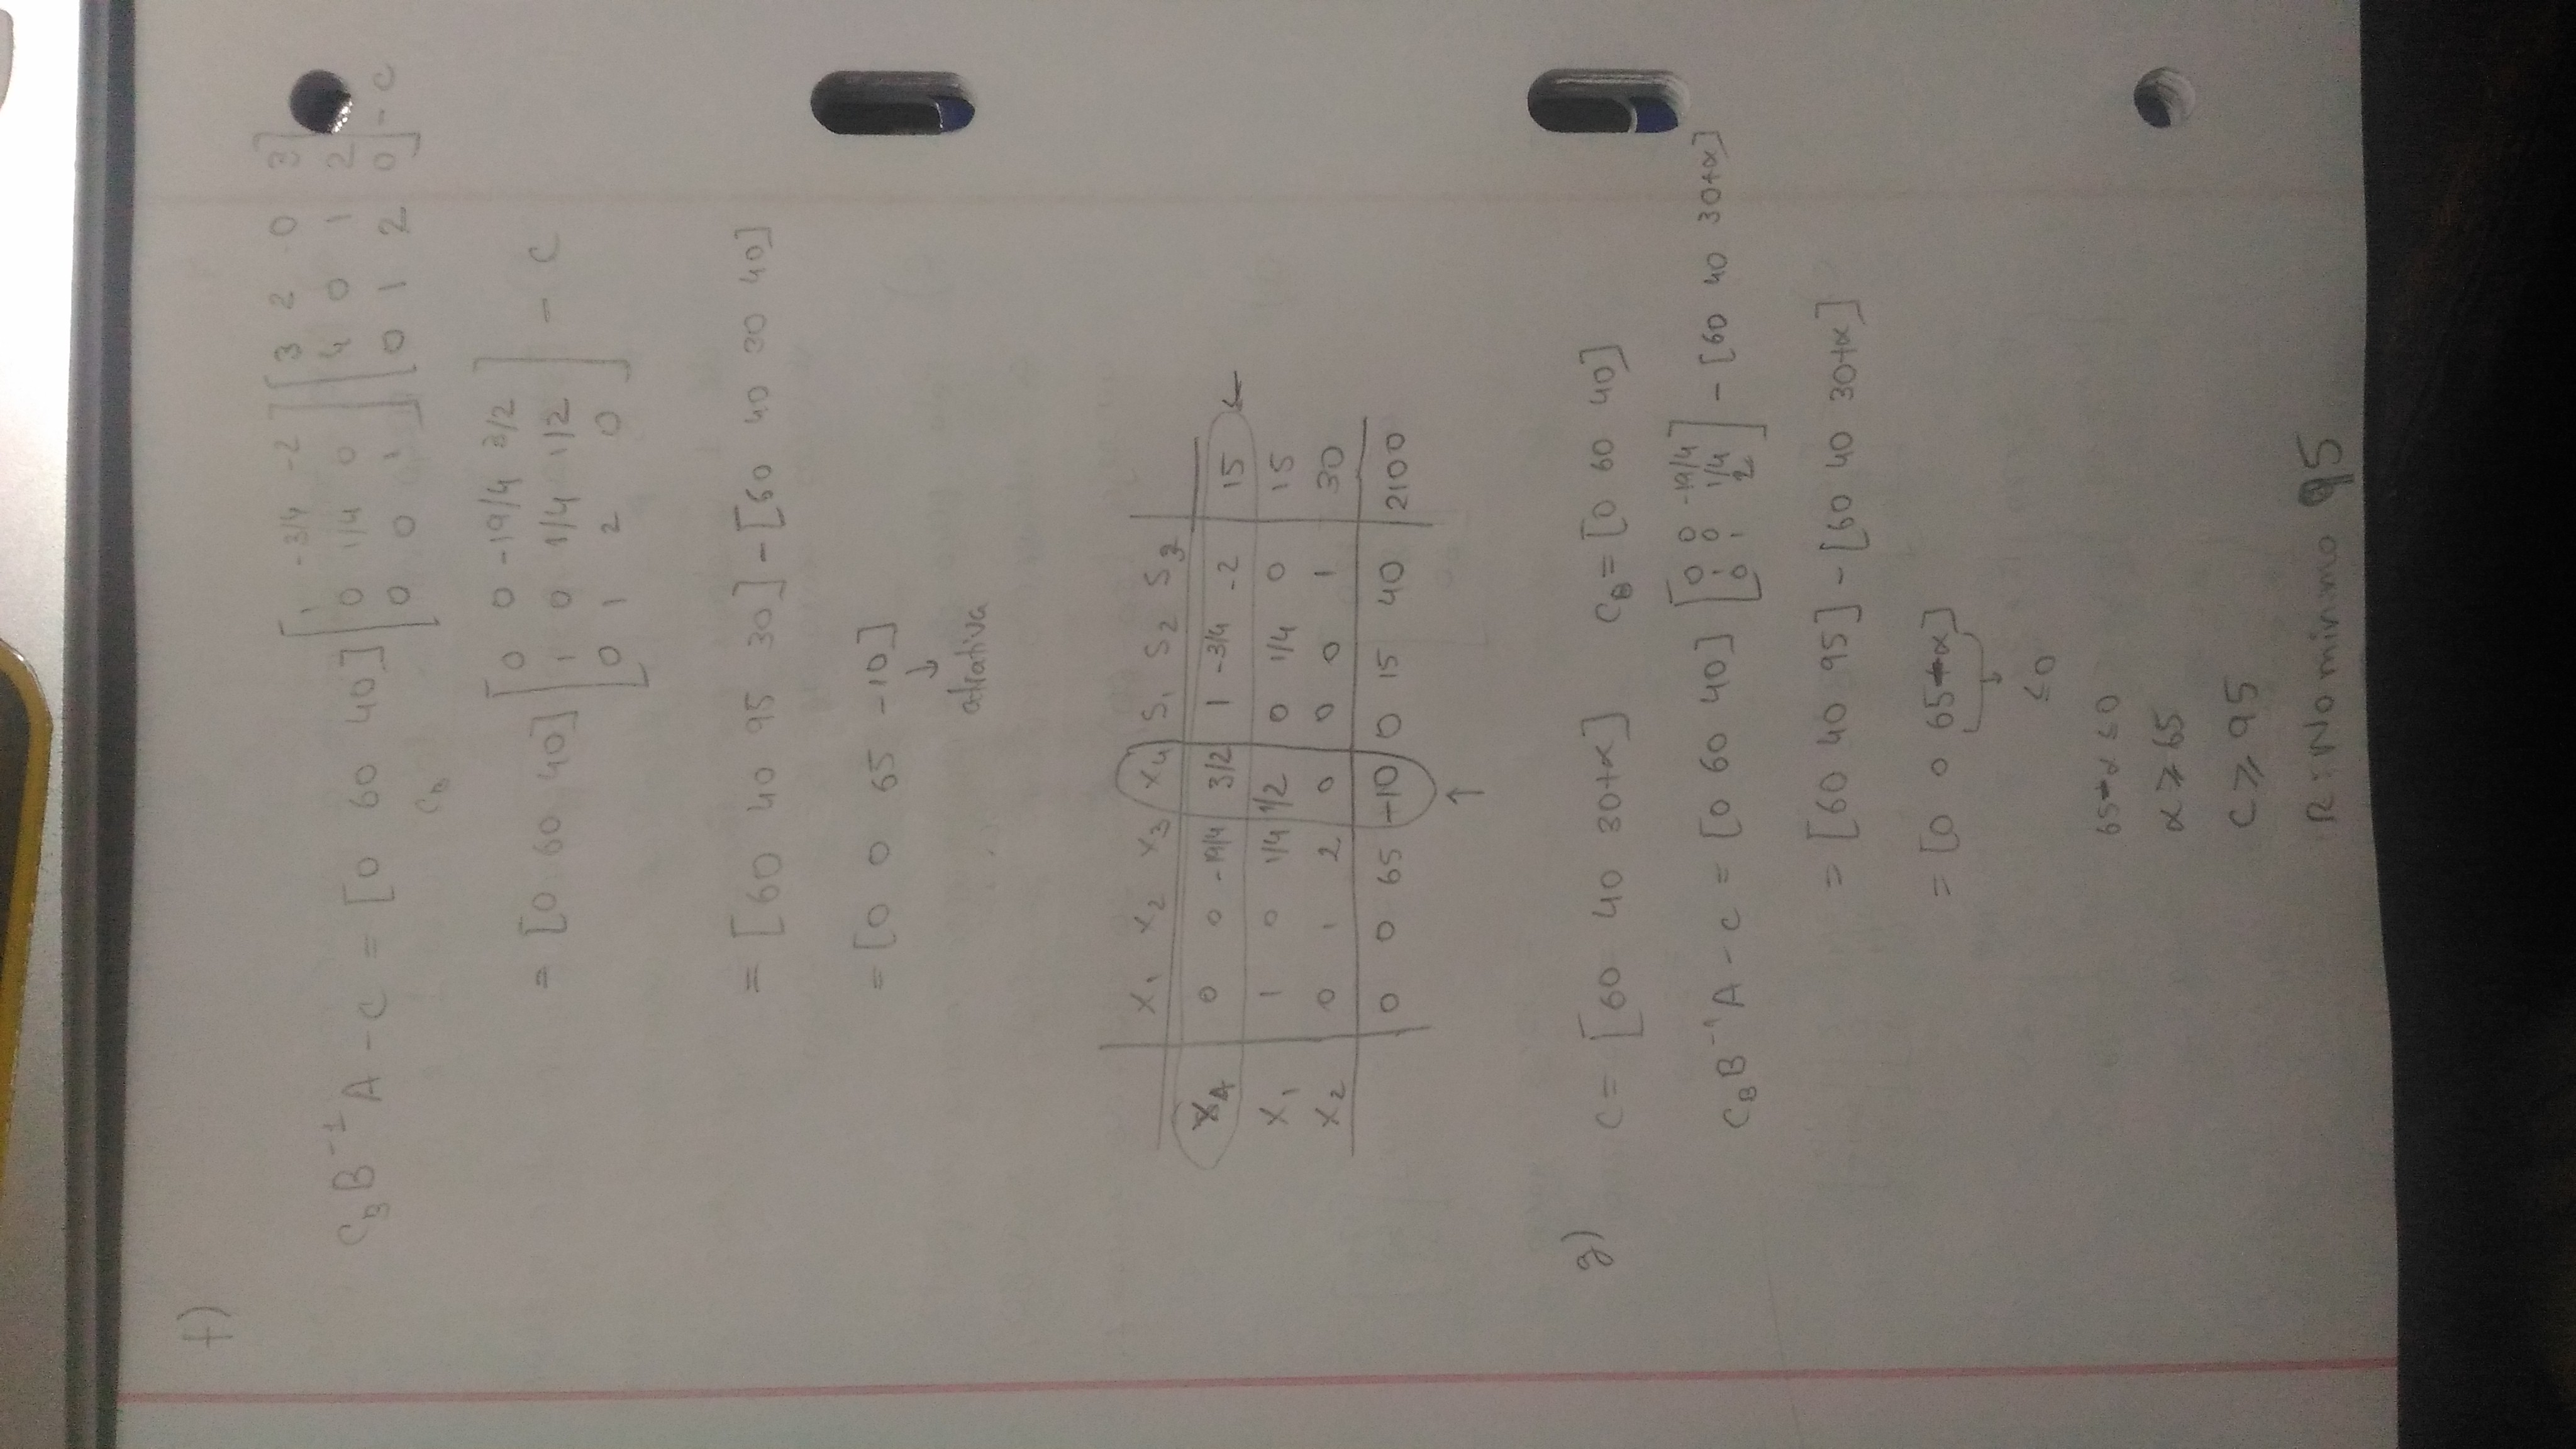 f)
C_B B⁻¹ A - C = [0 60 40] [1 -3/4 -2; 0 1/4 0; 0 0 1] [3 2 0 3; 4 0 1 2; 0 1 2 0] - C
C_B
= [0 60 40] [0 0 -19/4 3/2; 1 0 1/4 1/2; 0 1 2 0] - C
= [60 40 95 30] - [60 40 30 40]
= [0 0 65 -10]
↓
atrativa
x₁ x₂ x₃ x₄ S₁ S₂ S₃
0 0 -19/4 3/2 1 -3/4 -2 15 ←
x₁ 1 0 1/4 1/2 0 1/4 0 15
x₂ 0 1 2 0 0 0 1 30
0 0 65 -10 0 15 40 2100
↑
g) C = [60 40 30+α] C_B = [0 60 40]
C_B B⁻¹ A - C = [0 60 40] [0 0 -19/4; 1 0 1/4; 0 1 2] - [60 40 30+α]
= [60 40 95] - [60 40 30+α]
= [0 0 65-α]
↓
≤0
65-α ≤ 0
α ≥ 65
C ≥ 95
R: No minimo 95